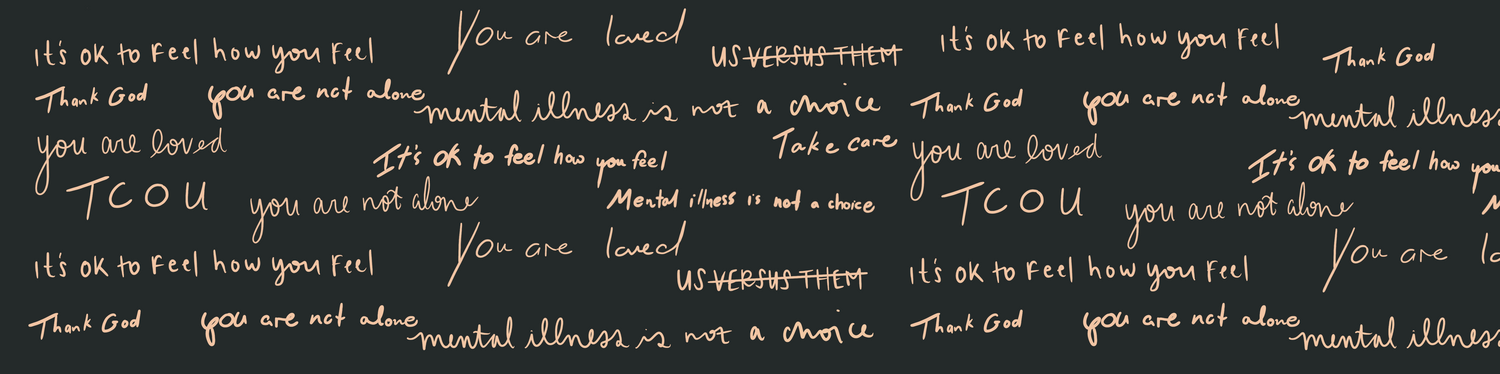 You are loved
It's ok to Feel how you Feel
US VERSUS THEM
It's ok to Feel how you Feel
Thank God
Thank God
you are not alone
mental illness is not a choice
Thank God
you are not alone
mental illness
you are loved
It's ok to feel how you feel
Take care
you are loved
It's ok to feel how you
TCOU
you are not alone
Mental illness is not a choice
TCOU
you are not alone
M
You are loved
It's ok to Feel how you Feel
US VERSUS THEM
It's ok to Feel how you Feel
You are lo
Thank God
you are not alone
mental illness is not a choice
Thank God
you are not alone
mental illness